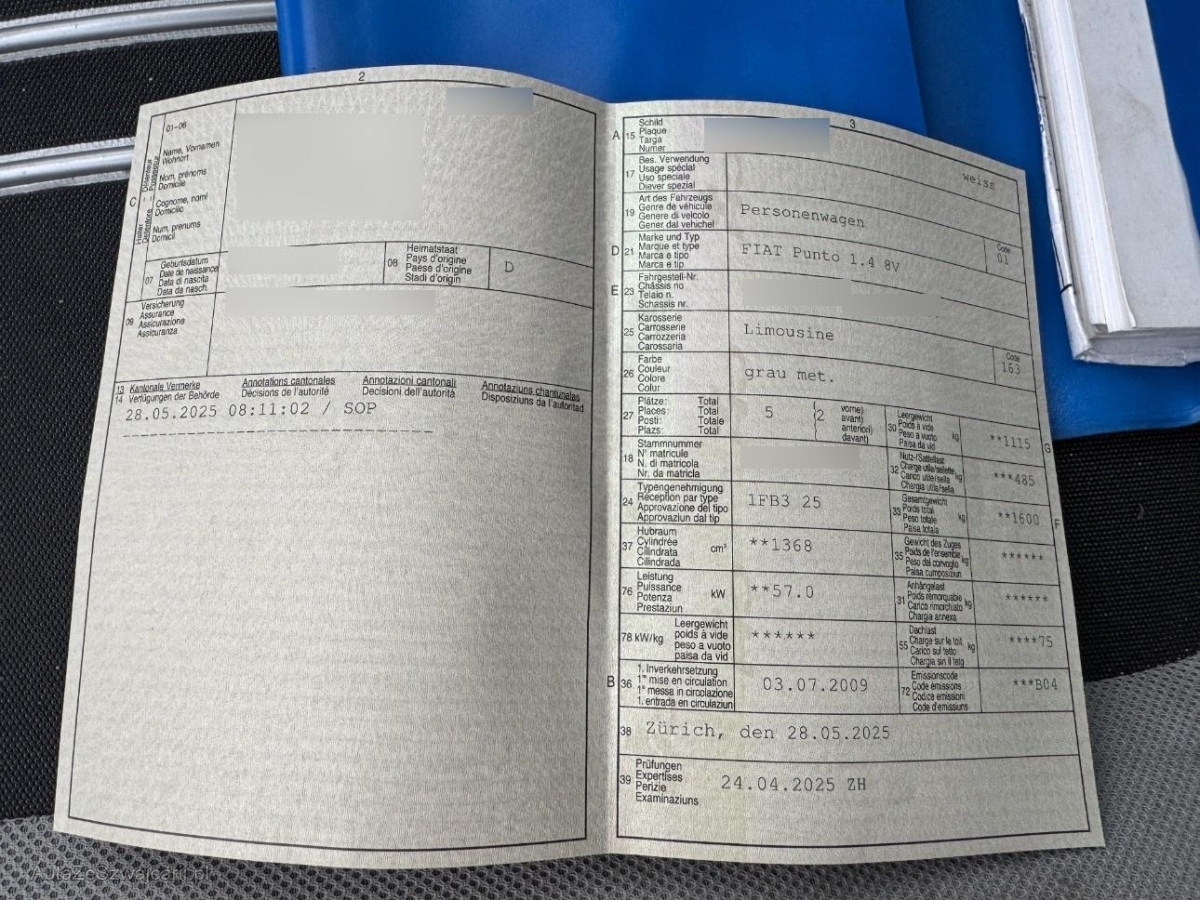 2
01-06
Name, Vornamen
Wohnort
Nom, prénoms
Domicile
Cognome, nomi
Domicilio
Num, prenums
Domicil
C
Halter – Détenteur
Detentore – Possessur
07
Geburtsdatum
Date de naissance
Data di nascita
Data da nasch.
08
Heimatstaat
Pays d'origine
Paese d'origine
Stadi d'origin
D
09
Versicherung
Assurance
Assicurazione
Assicuranza
13 Kantonale Vermerke
14 Verfügungen der Behörde
Annotations cantonales
Décisions de l'autorité
Annotazioni cantonali
Decisioni dell'autorità
Annotaziuns chantunalas
Disposiziuns da l'autoritad
28.05.2025 08:11:02 / SOP
3
A 15
Schild
Plaque
Targa
Numer
weiss
17
Bes. Verwendung
Usage spécial
Uso speciale
Diever spezial
19
Art des Fahrzeugs
Genre de véhicule
Genere di veicolo
Gener dal vehichel
Personenwagen
Code
01
D 21
Marke und Typ
Marque et type
Marca e tipo
Marca e tip
FIAT Punto 1.4 8V
E 23
Fahrgestell-Nr.
Châssis no
Telaio n.
Schassis nr.
25
Karosserie
Carrosserie
Carrozzeria
Carossaria
Limousine
Code
163
26
Farbe
Couleur
Colore
Colur
grau met.
27
Plätze: Total
Places: Total
Posti: Totale
Plazs: Total
5
(2
vorne)
avant)
anteriori)
davant)
30
Leergewicht
Poids à vide
Peso a vuoto
Paisa da vid
kg
**1115
G
18
Stammnummer
N° matricule
N. di matricola
Nr. da matricla
32
Nutz-/Sattellast
Charge utile/sellette
Carico utile/sella
Chargia utila/sella
kg
***485
24
Typengenehmigung
Réception par type
Approvazione del tipo
Approvaziun dal tip
1FB3 25
33
Gesamtgewicht
Poids total
Peso totale
Paisa totala
kg
**1600
F
37
Hubraum
Cylindrée
Cilindrata
Cilindrada
cm³
**1368
35
Gewicht des Zuges
Poids de l'ensemble
Peso del convoglio
Paisa cumposiziun
kg
******
76
Leistung
Puissance
Potenza
Prestaziun
kW
**57.0
31
Anhängelast
Poids remorquable
Carico rimorchiato
Chargia annexa
kg
******
78 kW/kg
Leergewicht
poids à vide
peso a vuoto
paisa da vid
******
55
Dachlast
Charge sur le toit
Carico sul tetto
Chargia sin il tetg
kg
****75
B 36
1. Inverkehrsetzung
1re mise en circulation
1a messa in circolazione
1. entrada en circulaziun
03.07.2009
72
Emissionscode
Code émissions
Codice emissioni
Code d'emissiuns
***B04
38
Zürich, den 28.05.2025
39
Prüfungen
Expertises
Perizie
Examinaziuns
24.04.2025 ZH
AutaZeSzwajcarii.pl